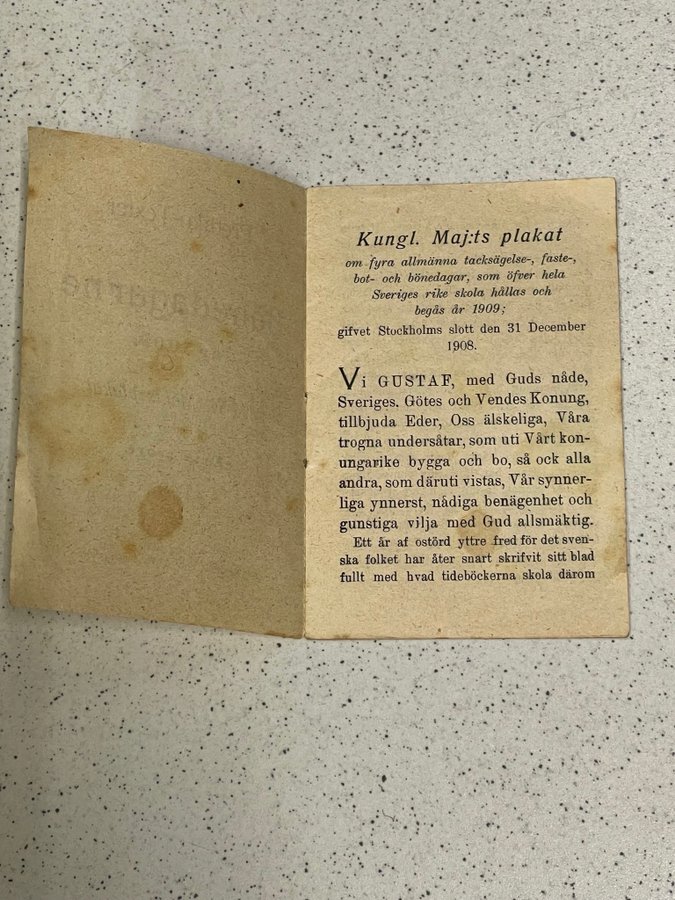 Kungl. Maj:ts plakat
om fyra allmänna tacksägelse-, faste-,
bot- och bönedagar, som öfver hela
Sveriges rike skola hållas och
begås år 1909;
gifvet Stockholms slott den 31 December
1908.
Vi GUSTAF, med Guds nåde,
Sveriges. Götes och Vendes Konung,
tillbjuda Eder, Oss älskeliga, Våra
trogna undersåtar, som uti Vårt kon-
ungarike bygga och bo, så ock alla
andra, som däruti vistas, Vår synner-
liga ynnerst, nådiga benägenhet och
gunstiga vilja med Gud allsmäktig.
Ett år af ostörd yttre fred för det sven-
ska folket har åter snart skrifvit sitt blad
fullt med hvad tideböckerna skola därom